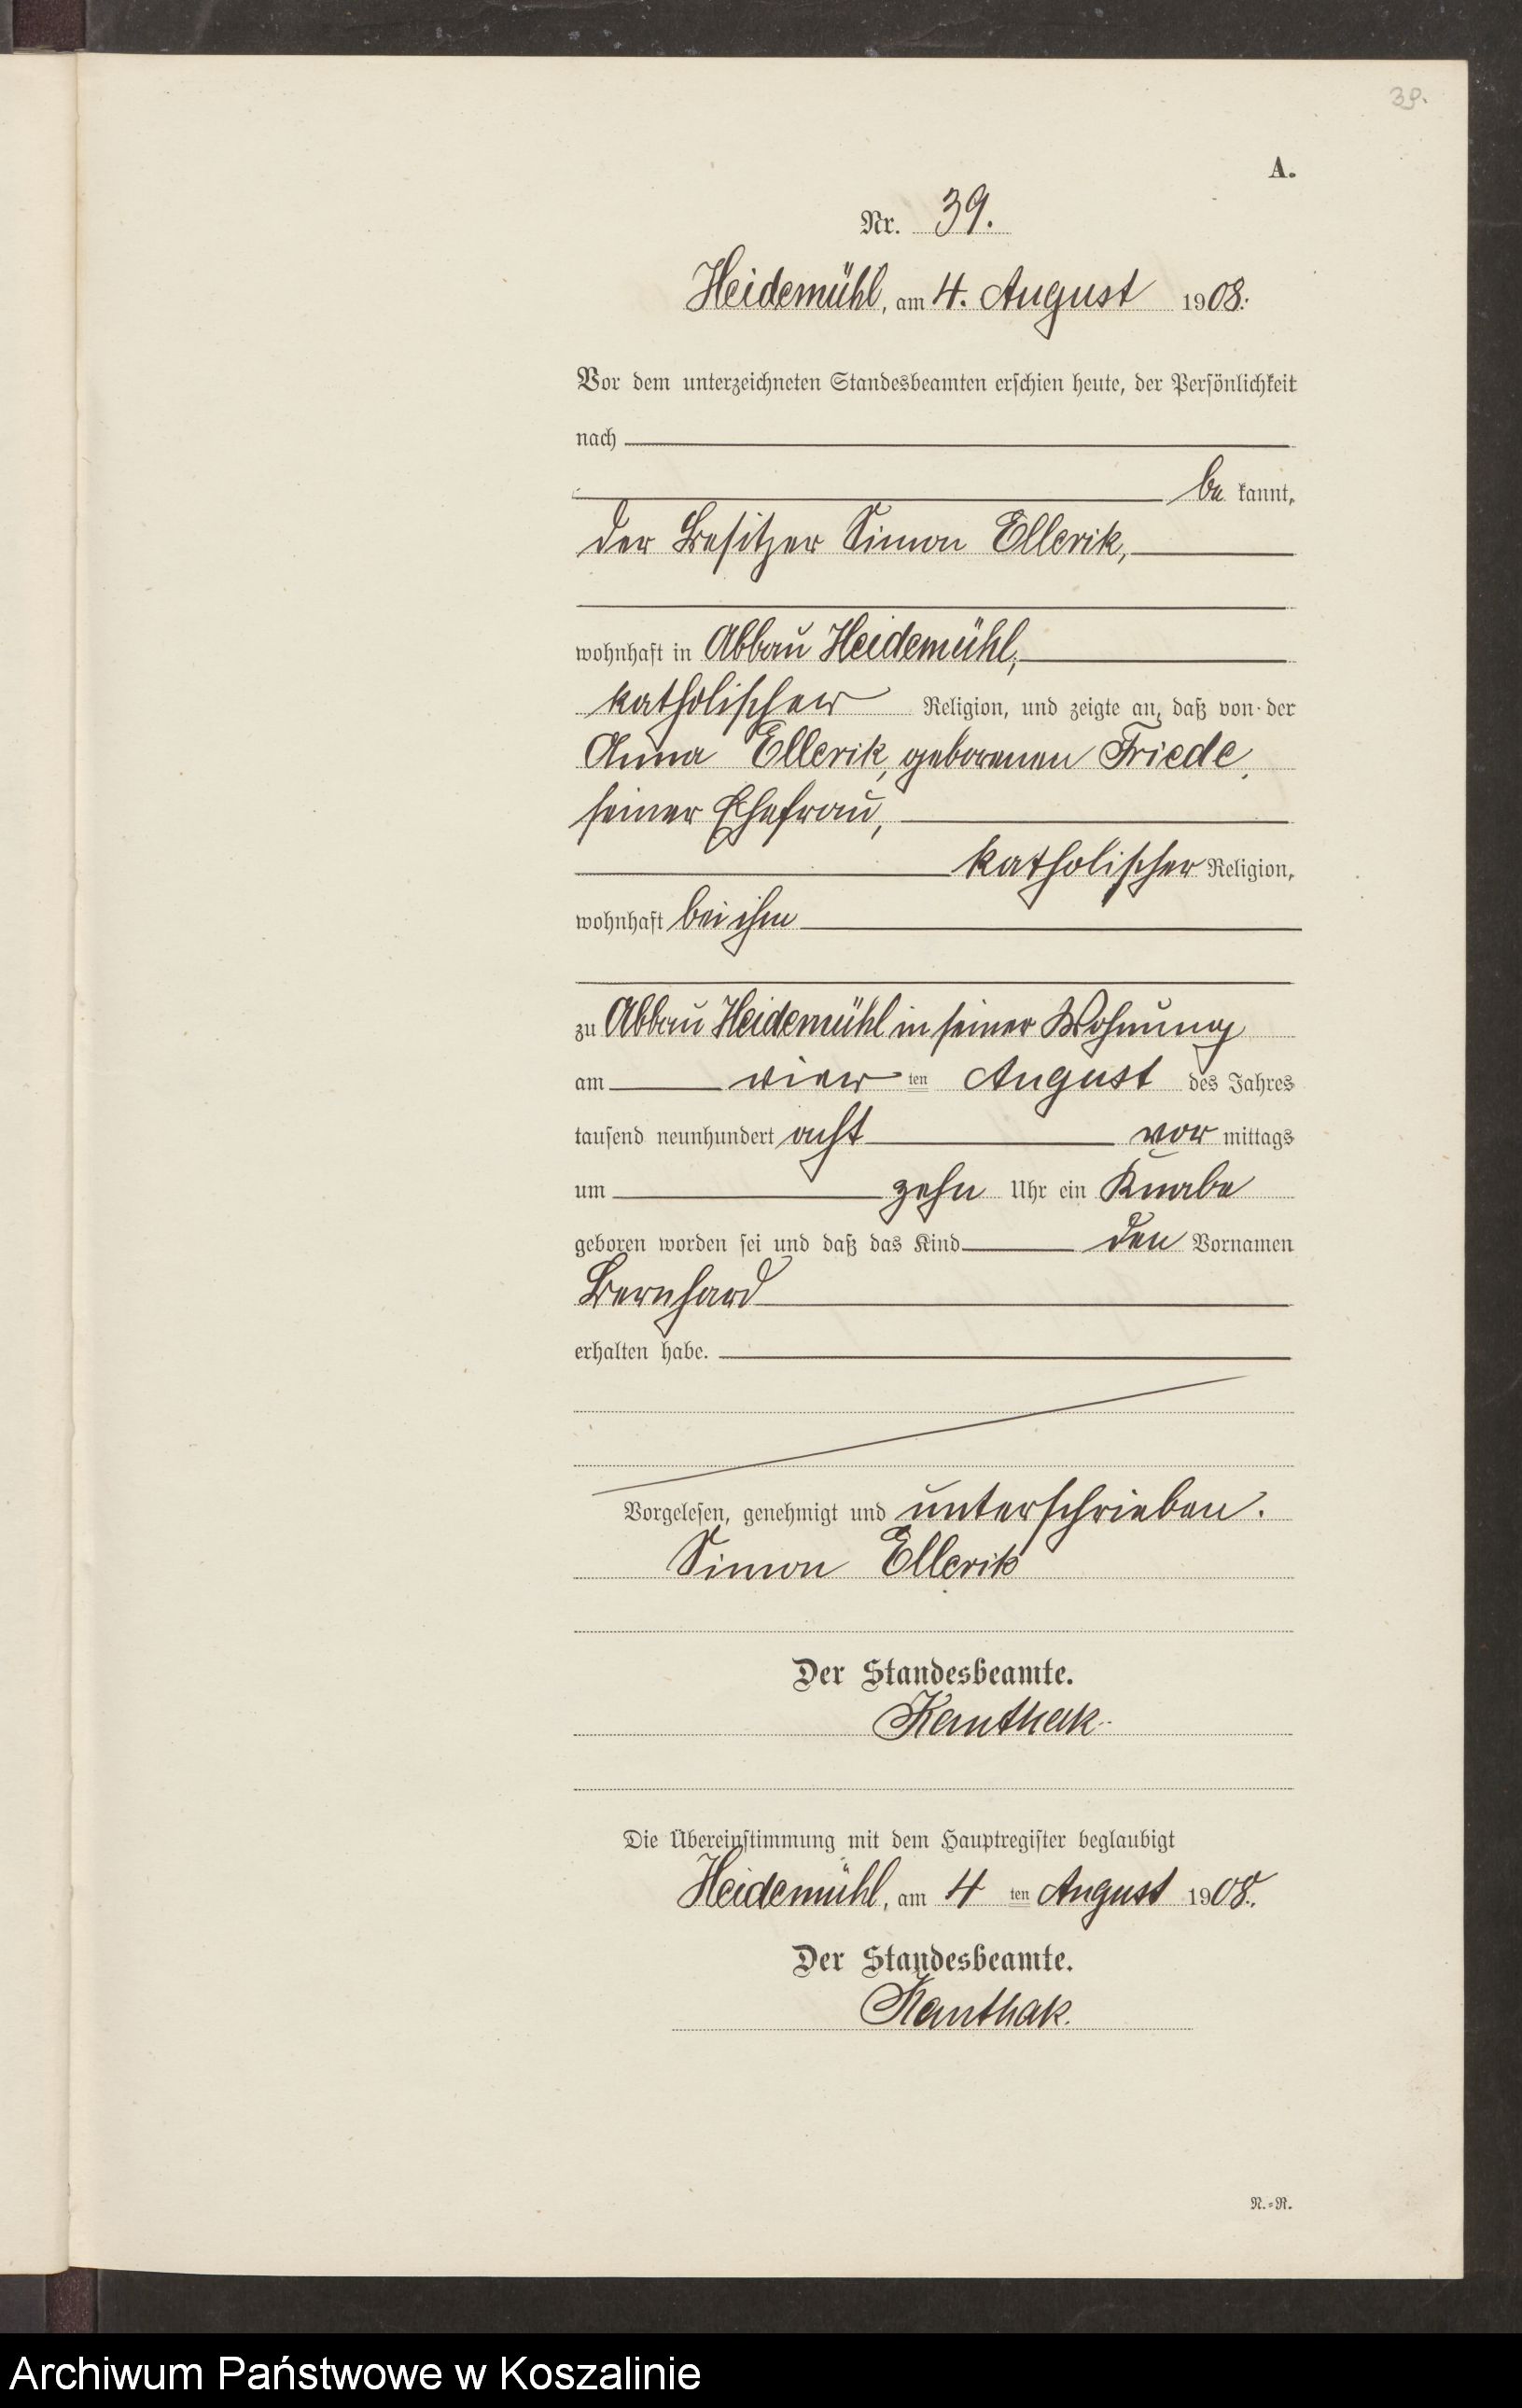 39.
A.
Nr. 39.
Heidemühl, am 4. August 1908.
Vor dem unterzeichneten Standesbeamten erschien heute, der Persönlichkeit
nach
be kannt,
der Besitzer Simon Ellerik,
wohnhaft in Abbau Heidemühl,
katholischer Religion, und zeigte an, daß von der
Anna Ellerik, geborenen Friede,
seiner Ehefrau,
katholischer Religion,
wohnhaft bei ihm
zu Abbau Heidemühl in seiner Wohnung
am vier ten August des Jahres
tausend neunhundert acht vor mittags
um zehn Uhr ein Knabe
geboren worden sei und daß das Kind den Vornamen
Bernhard
erhalten habe.
Vorgelesen, genehmigt und unterschrieben.
Simon Ellerik
Der Standesbeamte.
Kanthak
Die Übereinstimmung mit dem Hauptregister beglaubigt
Heidemühl, am 4 ten August 1908.
Der Standesbeamte.
Kanthak.
N.=R.
Archiwum Państwowe w Koszalinie